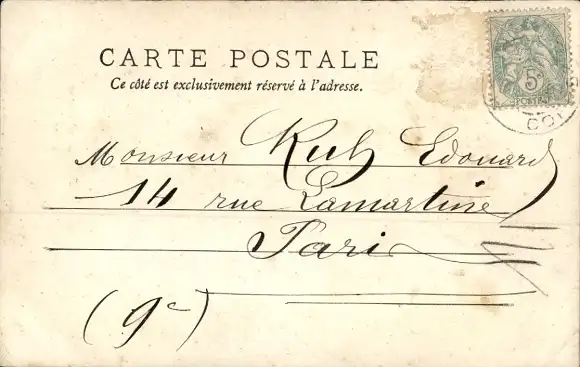 CARTE POSTALE
Ce côté est exclusivement réservé à l'adresse.
5c
POSTES
Monsieur Ruh Edouard
14 rue Lamartine
Paris
(9e)